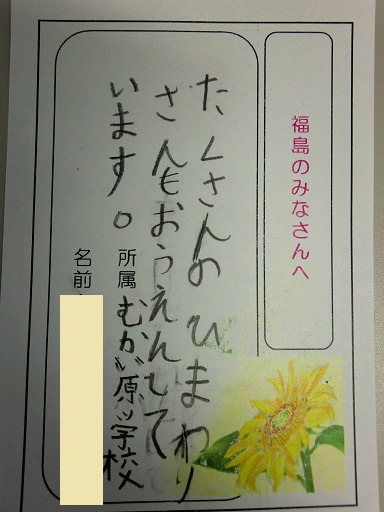 福島のみなさんへ
たくさんのひまわり
さんもおうえんして
います。
所属 むかい原小学校
名前